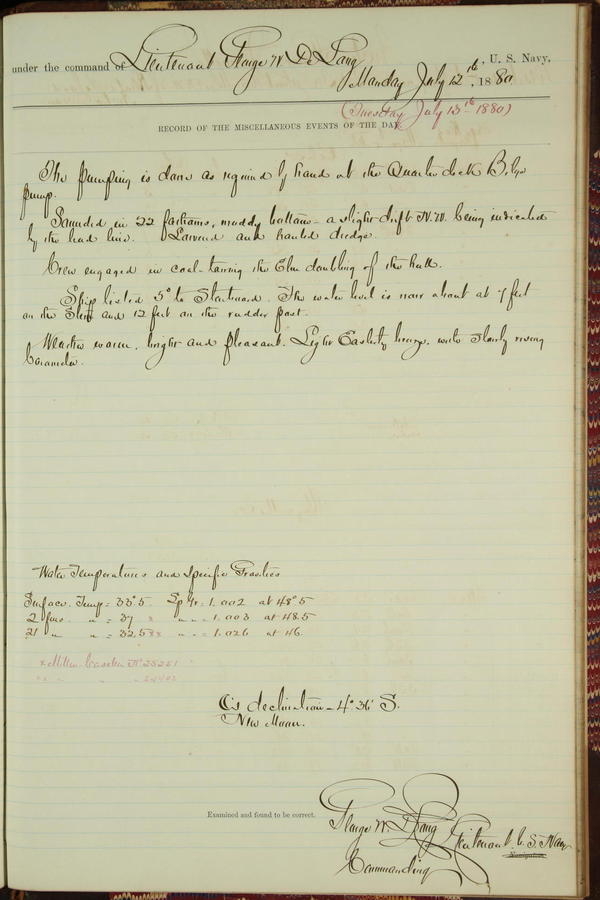 under the command of Lieutenant George W. De Long, U. S. Navy,
Monday July 12th, 1880
(Tuesday July 13th 1880)
RECORD OF THE MISCELLANEOUS EVENTS OF THE DAY.
The pumping is done as required by hand at the Quarter deck Bilge
pump.
Sounded in 22 fathoms, muddy bottom - a slight drift N.W. being indicated
by the lead line. Lowered and hauled dredge.
Crew engaged in coal-tarring the Elm doubling of the hull.
Ship listed 5° to Starboard. The water level is now about at 7 feet
on the Stem and 12 feet on the rudder post.
Weather warm, bright and pleasant. Light Easterly breeze, with slowly rising
barometer.
Water Temperatures and Specific Gravities
Surface. Temp = 33°.5 Sp Gr = 1.002 at 48°.5
2 fms. " = 37 " " = 1.003 at 48.5
21 " " = 32.5 " " = 1.026 at 46
x Miller Casella No 25251
xx " " " 24402
☾'s declination - 4° 36' S.
New Moon.
Examined and found to be correct.
George W. De Long Lieutenant U.S. Navy
Navigator.
Commanding